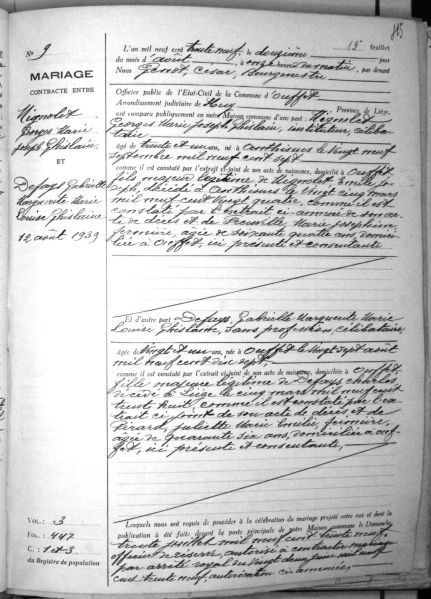 N° 9
MARIAGE
CONTRACTÉ ENTRE
Mignolet
Georges Marie
Joseph Ghislain
ET
Defays Gabrielle
Marguerite Marie
Louise Ghislaine
12 août 1939
VOL.: 3
FOL.: 447
C.: 1 et 3
du Registre de population
15 feuillet
L'an mil neuf cent trente neuf, le douzième jour
du mois d'août, à onze heures du matin, par devant
Nous Genot, César, Bourgmestre
Officier public de l'Etat-Civil de la Commune d'Ouffet
Arrondissement judiciaire de Huy Province de Liége,
ont comparu publiquement en notre Maison commune d'une part: Mignolet
Georges Marie Joseph Ghislain, instituteur, céliba-
taire
âgé de trente et un ans, né à Anthisnes le vingt neuf
septembre mil neuf cent sept
comme il est constaté par l'extrait ci-joint de son acte de naissance, domicilié à Ouffet,
fils majeur légitime de Mignolet Emile Jo-
seph, décédé à Anthisnes le vingt cinq mars
mil neuf cent vingt quatre, comme il est
constaté par l'extrait ci-annexé de son ac-
te de décès et de Marie Joséphine,
fermière, âgée de soixante quatre ans, domici-
liée à Ouffet, ici présente et consentante
Et d'autre part Defays, Gabrielle Marguerite Marie
Louise Ghislaine, sans profession, célibataire
âgée de vingt et un ans, née à Ouffet le vingt sept août
mil neuf cent dix sept
comme il est constaté par l'extrait ci-joint de son acte de naissance, domiciliée à Ouffet,
fille majeure légitime de Defays Charles
décédé à Liége le cinq mars mil neuf cent
trente huit, comme il est constaté par l'ex-
trait ci-joint de son acte de décès et de
Pirard, Juliette Marie Emilie, fermière,
âgée de quarante six ans, domiciliée à Ouf-
fet, ici présente et consentante,
Lesquels nous ont requis de procéder à la célébration du mariage projeté entre eux et dont la
publication a été faite devant la porte principale de notre Maison commune le Dimanche
trente juillet mil neuf cent trente neuf,
officier de réserve, autorisé à contracter mariage
par arrêté royal du vingt deux juin mil neuf
cent trente neuf, autorisation ci-annexée,